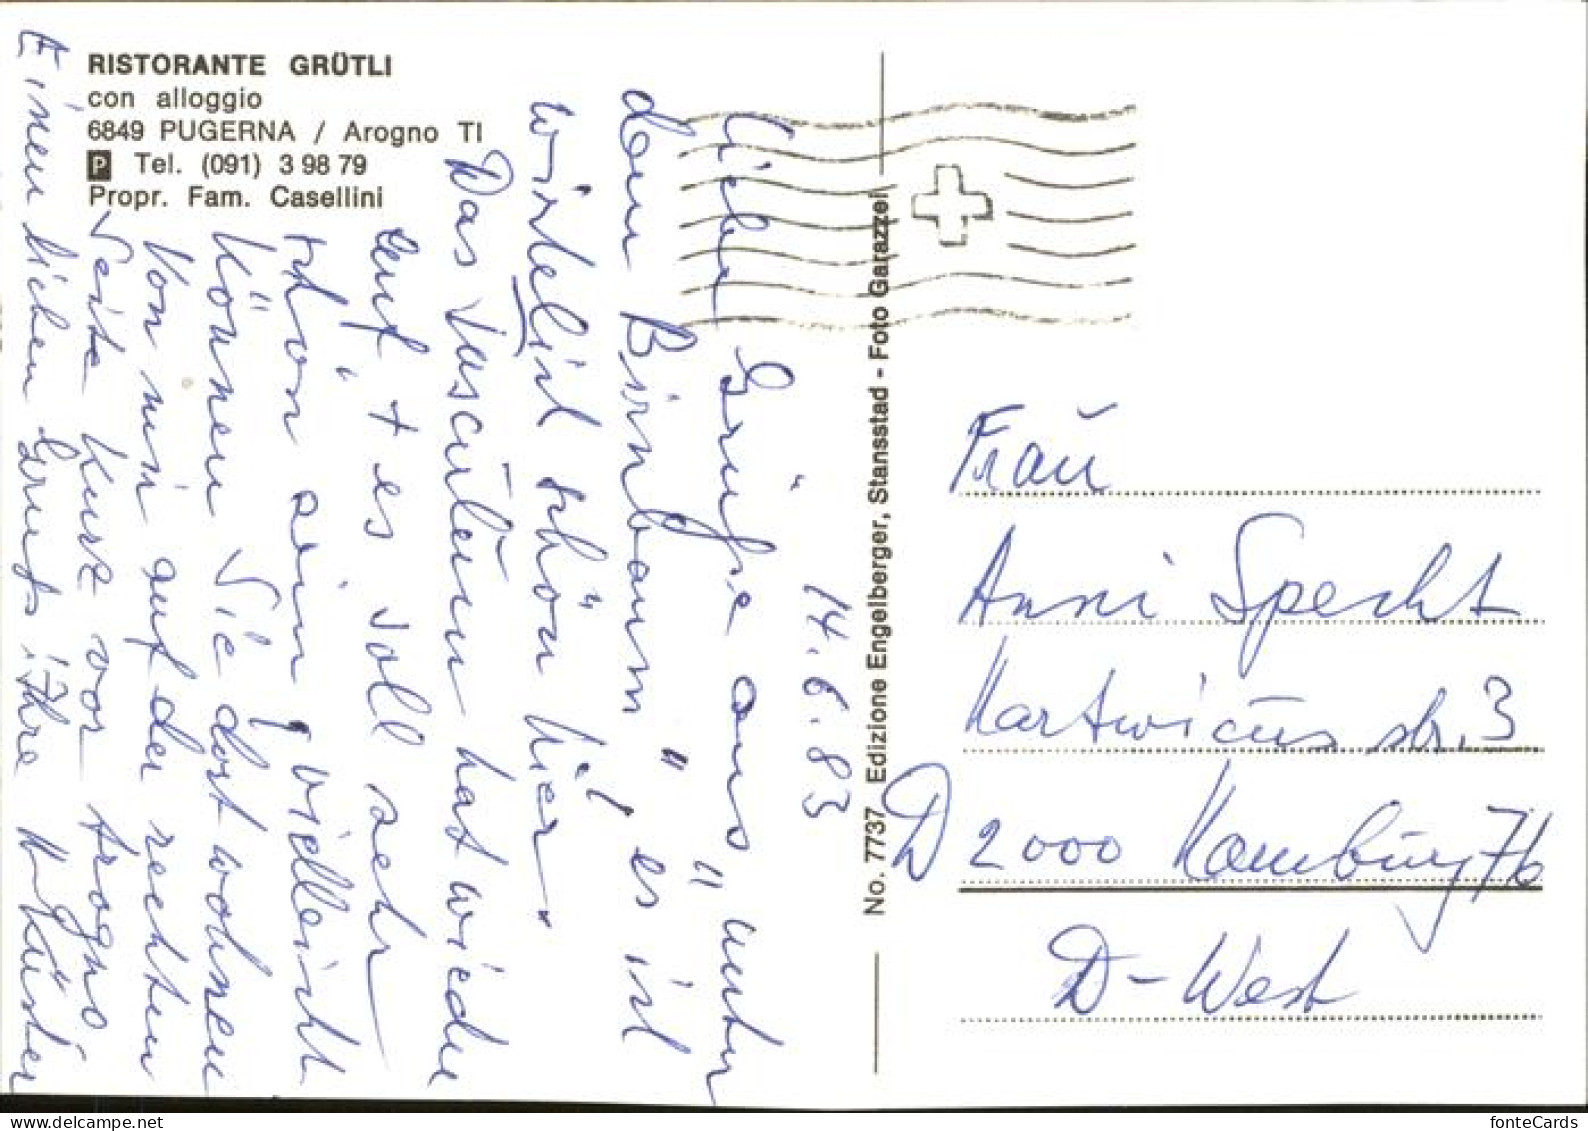 RISTORANTE GRÜTLI
con alloggio
6849 PUGERNA / Arogno TI
P Tel. (091) 3 98 79
Propr. Fam. Casellini
14.6.83
Liebe Grüße aus "unter
dem Birnbaum", es ist
wirklich schön hier.
Das hat wieder
auf + es soll sehr
schön sein, vielleicht
können Sie dort wohnen
Von mir auf der rechten
Seite kurz vor Arogno
Einen lieben Gruß Ihre Küster
No. 7737 Edizione Engelberger, Stansstad - Foto Garazzel
Frau
Anni Specht
Hartwicus str. 3
D 2000 Hamburg 76
D-West
fonteCards